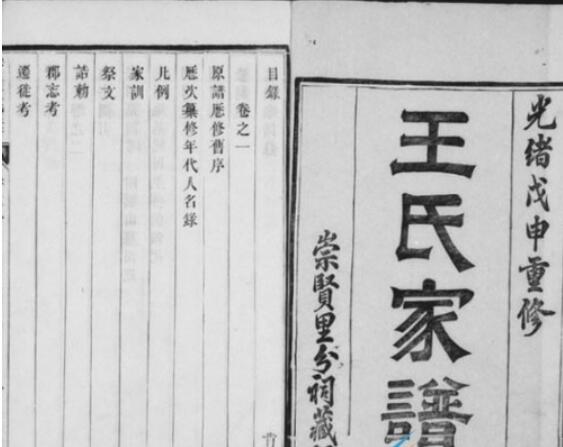 光緒戊申重修
王氏家譜
崇賢里分祠藏
目錄
卷之一
原譜歷修舊序
歷次纂修年代人名錄
凡例
家訓
祭文
誥勅
郡志考
遷徙考